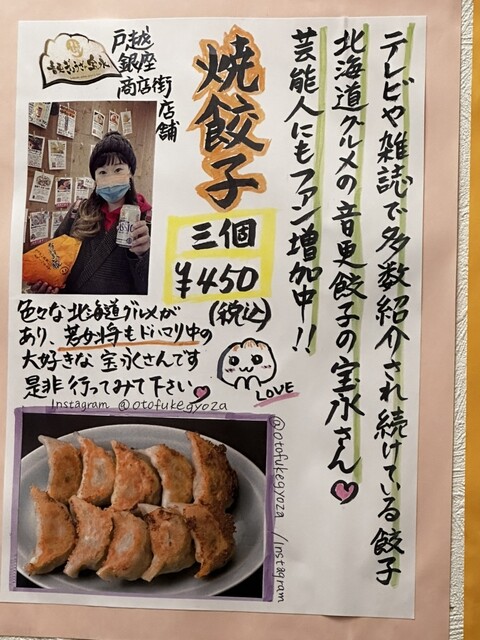 テレビや雑誌で多数紹介され続けている餃子
北海道グルメの音更餃子の宝永さん
芸能人にもファン増加中!!
焼餃子
三個
¥450
(税込)
戸越
銀座
商店街
店舗
色々な北海道グルメが
あり、若女将もドハマり中の
大好きな宝永さんです
是非行ってみて下さい
LOVE
Instagram @otofukegyoza
@otofukegyoza /Instagram